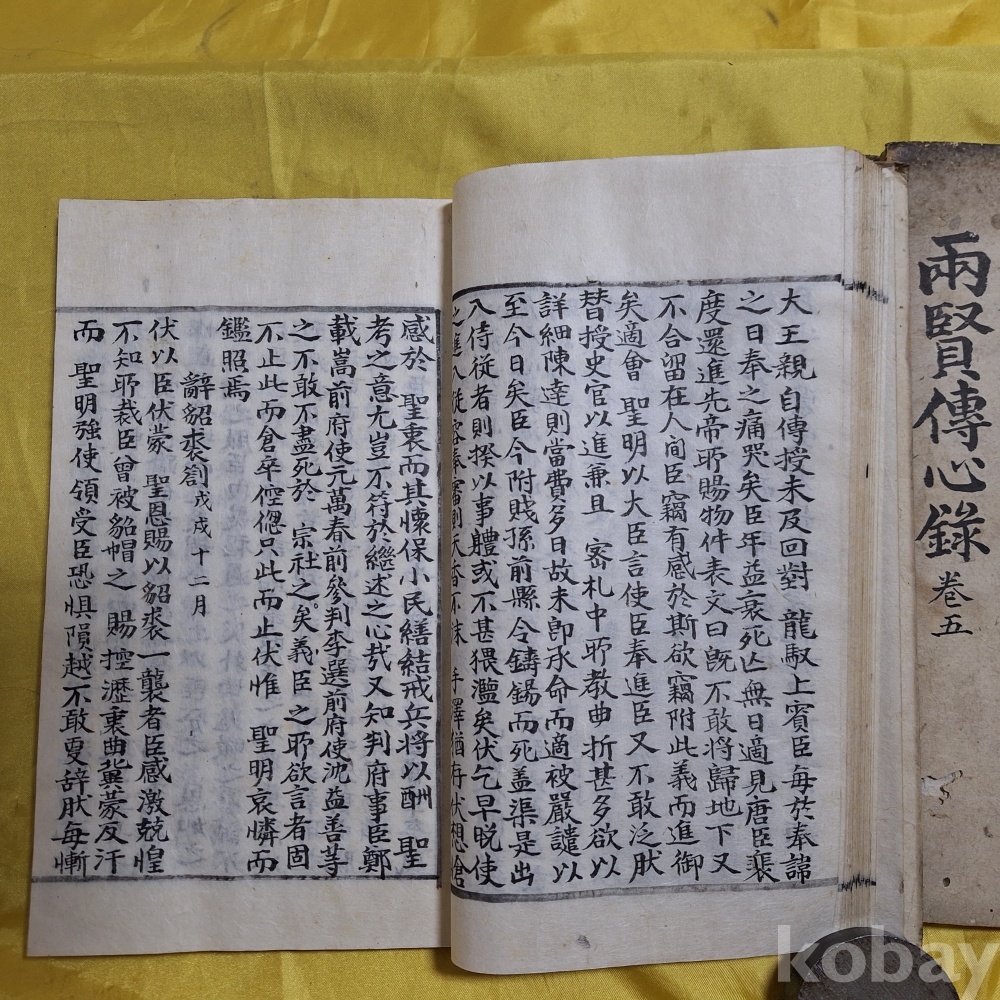 大王親自傳授未及回對 龍馭上賓臣每於奉諦
之日奉之痛哭矣臣年益衰死亡無日適見唐臣裴
度還進先帝所賜物件表文曰旣不敢將歸地下又
不合留在人間臣竊有感於斯欲竊附此義而進御
矣適會 聖明以大臣言使臣奉進臣又不敢泛肰
替授史官以進兼且 密札中所教曲折甚多欲以
詳細陳達則當費多日故未卽承命而適被嚴譴以
至今日矣臣今附賤孫前縣令鑄錫而死盖渠是出
入侍從者則揆以事軆或不甚猥濫矣伏乞早晩使
之進入從容奉審則天香不沫 手澤猶存伏想愴
感於 聖衷而其懷保小民繕結戒兵將以酬 聖
考之意尤豈不符於繼述之心㢤又知判府事臣鄭
載嵩前府使元萬春前參判李選前府使沈益善等
之不敢不盡死於 宗社之矣義臣之所欲言者固
不止此而倉卒倥傯只此而止伏惟 聖明哀憐而
鑑照焉
辭貂裘劄 戊戌十二月
伏以臣伏蒙 聖恩賜以貂裘一襲者臣感激兢惶
不知所裁臣曾被貂帽之 賜控瀝衷曲冀蒙反汗
而 聖明強使領受臣恐惧隕越不敢更辞肰每慚
兩賢傳心錄 卷五
kobay